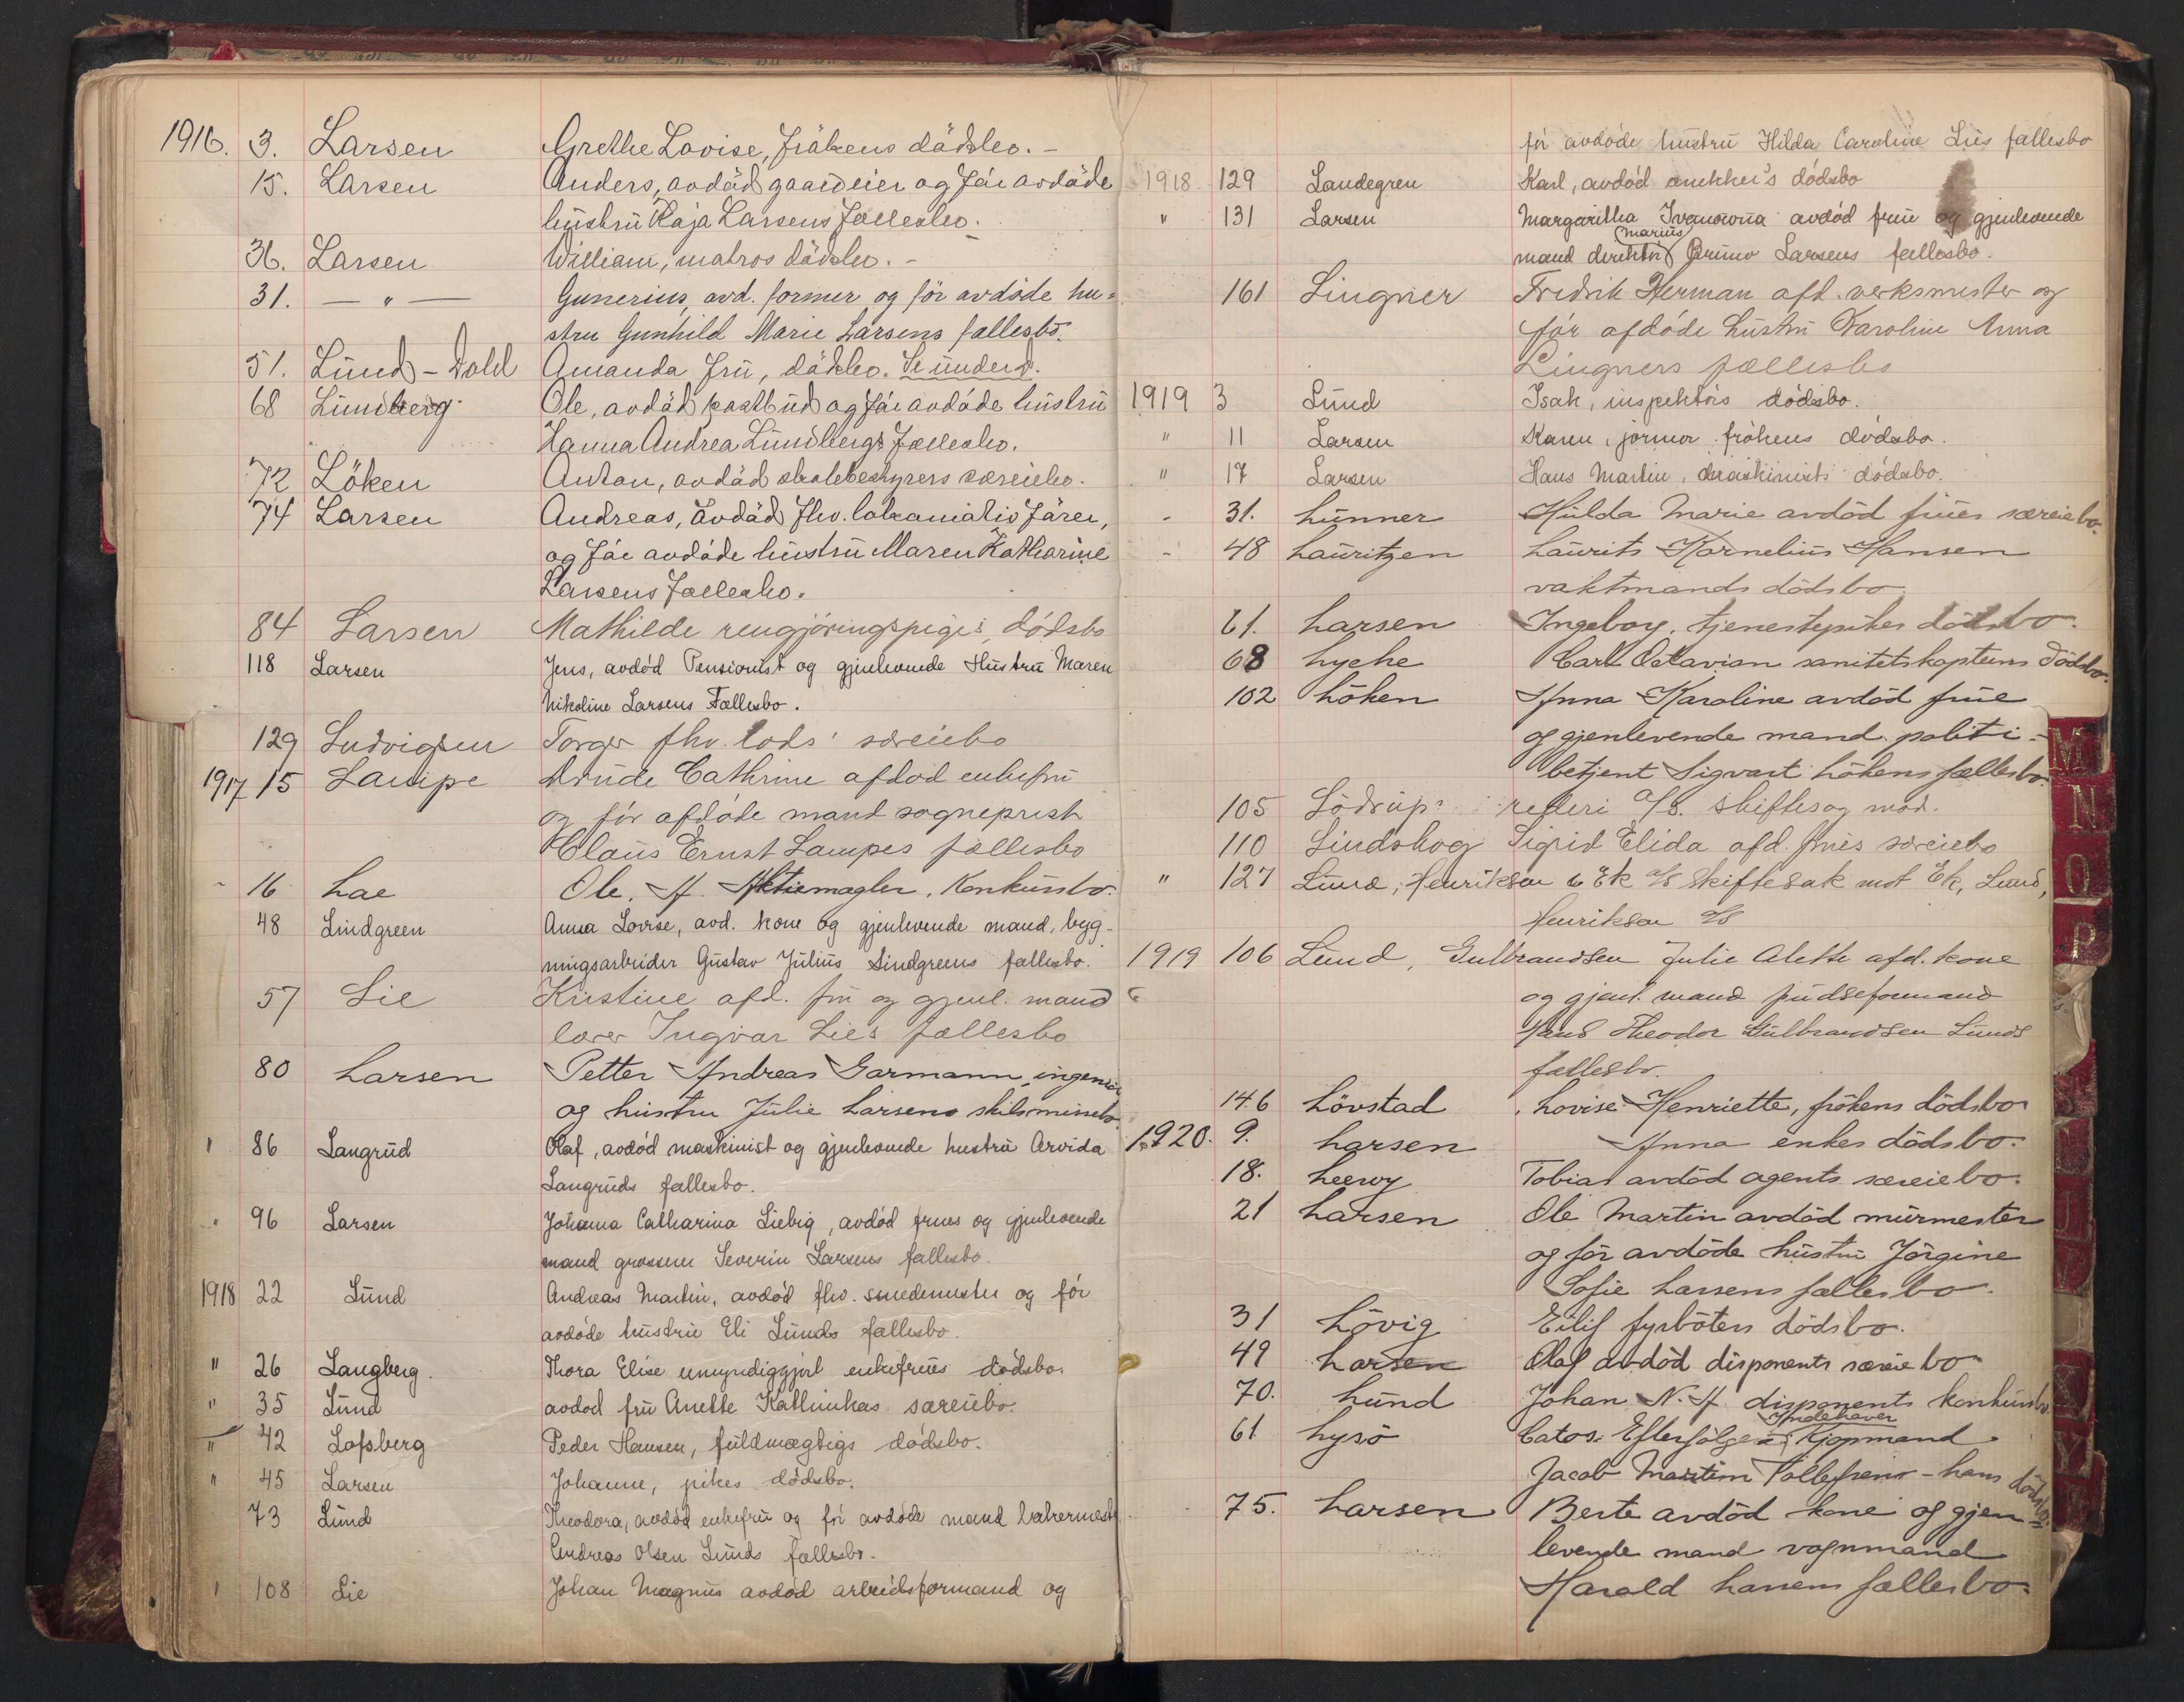 1916. 3. Larsen Grethe Lovise, frökens dödsbo. -
15. Larsen Anders, avdöd gaardeier og för avdöde
hustru Kaja Larsens fællesbo.
36. Larsen William, matros dödsbo. -
31. — " — Gunerius, avd. former og för avdöde hu-
stru Gunhild Marie Larsens fællesbo.
51. Lund - Dahl Amanda fru, dödsbo. Se under D.
68 Lundberg Ole, avdöd postbud og för avdöde hustru
Hanna Andrea Lundbergs fællesbo.
72 Löken Anton, avdöd skolebestyrers særeiebo.
74 Larsen Andreas, avdöd fhv. lokomotivförer,
og för avdöde hustru Maren Katharine
Larsens fællesbo.
84 Larsen Mathilde rengjöringspiges dödsbo
118 Larsen Jens, avdöd Pensionist og gjenlevende Hustru Maren
Nikoline Larsens Fællesbo.
129 Ludvigsen Torger fhv. lods' særeiebo
1917 15 Lampe Drude Cathrine afdöd enkefru
og för afdöde mand sogneprest
Claus Ernst Lampes fællesbo
- 16 Lae Ole. A. Aktiemægler, Konkursbo.
48 Lindgreen Anna Lovise, avd. kone og gjenlevende mand, byg-
ningsarbeider Gustav Julius Lindgreens fællesbo.
57 Lie Kristine afd. fru og gjenl. mand
lærer Ingvar Lie's fællesbo
80 Larsen Petter Andreas Garmann, ingeniör
og hustru Julie Larsens skilsmissebo.
" 86 Langrud Olaf, avdöd maskinist og gjenlevende hustru Arvida
Langruds fællesbo.
" 96 Larsen Johanna Catharina Liebig, avdöd frues og gjenlevende
mand grosserer Severin Larsens fællesbo.
1918 22 Lund Andreas Martin, avdöd fhv. smedemester og för
avdöde hustru Eli Lunds fællesbo.
" 26 Langberg. Thora Elise umyndiggjort enkefrues dödsbo.
" 35 Lund avdöd fru Anette Kathinkas særeiebo.
" 42 Lofsberg Peder Hansen, fuldmægtigs dödsbo.
" 45 Larsen Johanne, pikes dödsbo.
73 Lund Theodora, avdöd enkefru og för avdöde mand bakermester
Andreas Olsen Lunds fællesbo.
" 108 Lie Johan Magnus avdöd arbeidsformand og
för avdöde hustru Hilda Caroline Lies fællesbo
1918 129 Landegren Karl, avdöd snekker's dödsbo
" 131 Larsen Margaritha Ivanovna avdöd frue og gjenlevende
marius
mand direktör Bruno Larsens fællesbo.
161 Lingner Fredrik Herman afd. verksmester og
för afdöde hustru Karoline Anna
Lingners fællesbo
1919 3 Lund Isak, inspektörs dödsbo.
" 11 Larsen Karen, jormor frökens dödsbo.
" 17 Larsen Hans Martin, maskinists dödsbo.
- 31. Lunner Hulda Marie avdöd frues særeiebo.
- 48 Lauritzen Laurits Kornelius Hansen
vaktmands dödsbo
61. Larsen Ingeborg, tjenestepikes dödsbo.
68 Lyche Carl Octavian sanitetskapteins dödsbo.
102 Löken Anna Karoline avdöd frue
og gjenlevende mand politi-
betjent Sigvart Lökens fællesbo.
105 Lödrup's rederi A/S. skiftesag mod.
110 Lindskog Sigrid Elida afd. frues særeiebo
" 127 Lund, Henriksen & Ek A/S skiftesak mot Ek, Lund,
Henriksen A/S
1919 106 Lund, Gulbrandsen Julie Alette afd. kone
og gjenl. mand pudseformand
Hans Theodor Gulbrandsen Lunds
fællesbo.
146 Lövstad Lovise Henriette, frökens dödsbo
1920. 9. Larsen Anna enkes dödsbo.
18. Leewy Tobias avdöd agents særeiebo.
21 Larsen Ole Martin avdöd murmester
og för avdöde hustru Jörgine
Sofie Larsens fællesbo.
31 Lövig Eilif fyrböters dödsbo.
49 Larsen Olaf avdöd disponents særeiebo
70. Lund Johan N. A. disponents konkursbo.
Indehaver
61 Lysö Catos. Efterfölger Kjöpmand
Jacob Martin Tollefsens - hans dödsbo.
75. Larsen Berte avdöd kone og gjen-
levende mand vognmand
Harald Larsens fællesbo.
M
N
O
P